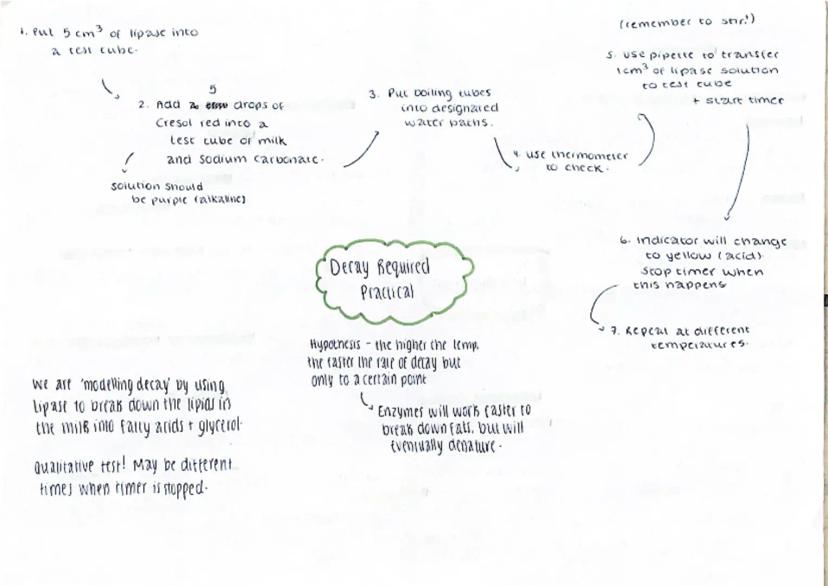 1. Put 5 cm³ of lipase into
a test tube.
5
2. Add drops of
Cresol red into a
test tube of milk
and sodium carbonate.
solution should
be purple (alkaline)
3. Put boiling tubes
into designated
water baths.
4. use thermometer
to check.
(remember to stir!)
5. use pipette to transfer
1cm³ of lipase solution
to test tube
+ start timer
6. Indicator will change
to yellow (acid).
Stop timer when
this happens
7. Repeat at different
temperatures.
Decay Required
Practical
Hypothesis - the higher the temp,
the faster the rate of decay but
only to a certain point
Enzymes will work faster to
break down fats, but will
eventually denature.
We are 'modelling decay' by using
lipase to break down the lipids in
the milk into fatty acids + glycerol.
Qualitative test! May be different
times when timer is stopped.